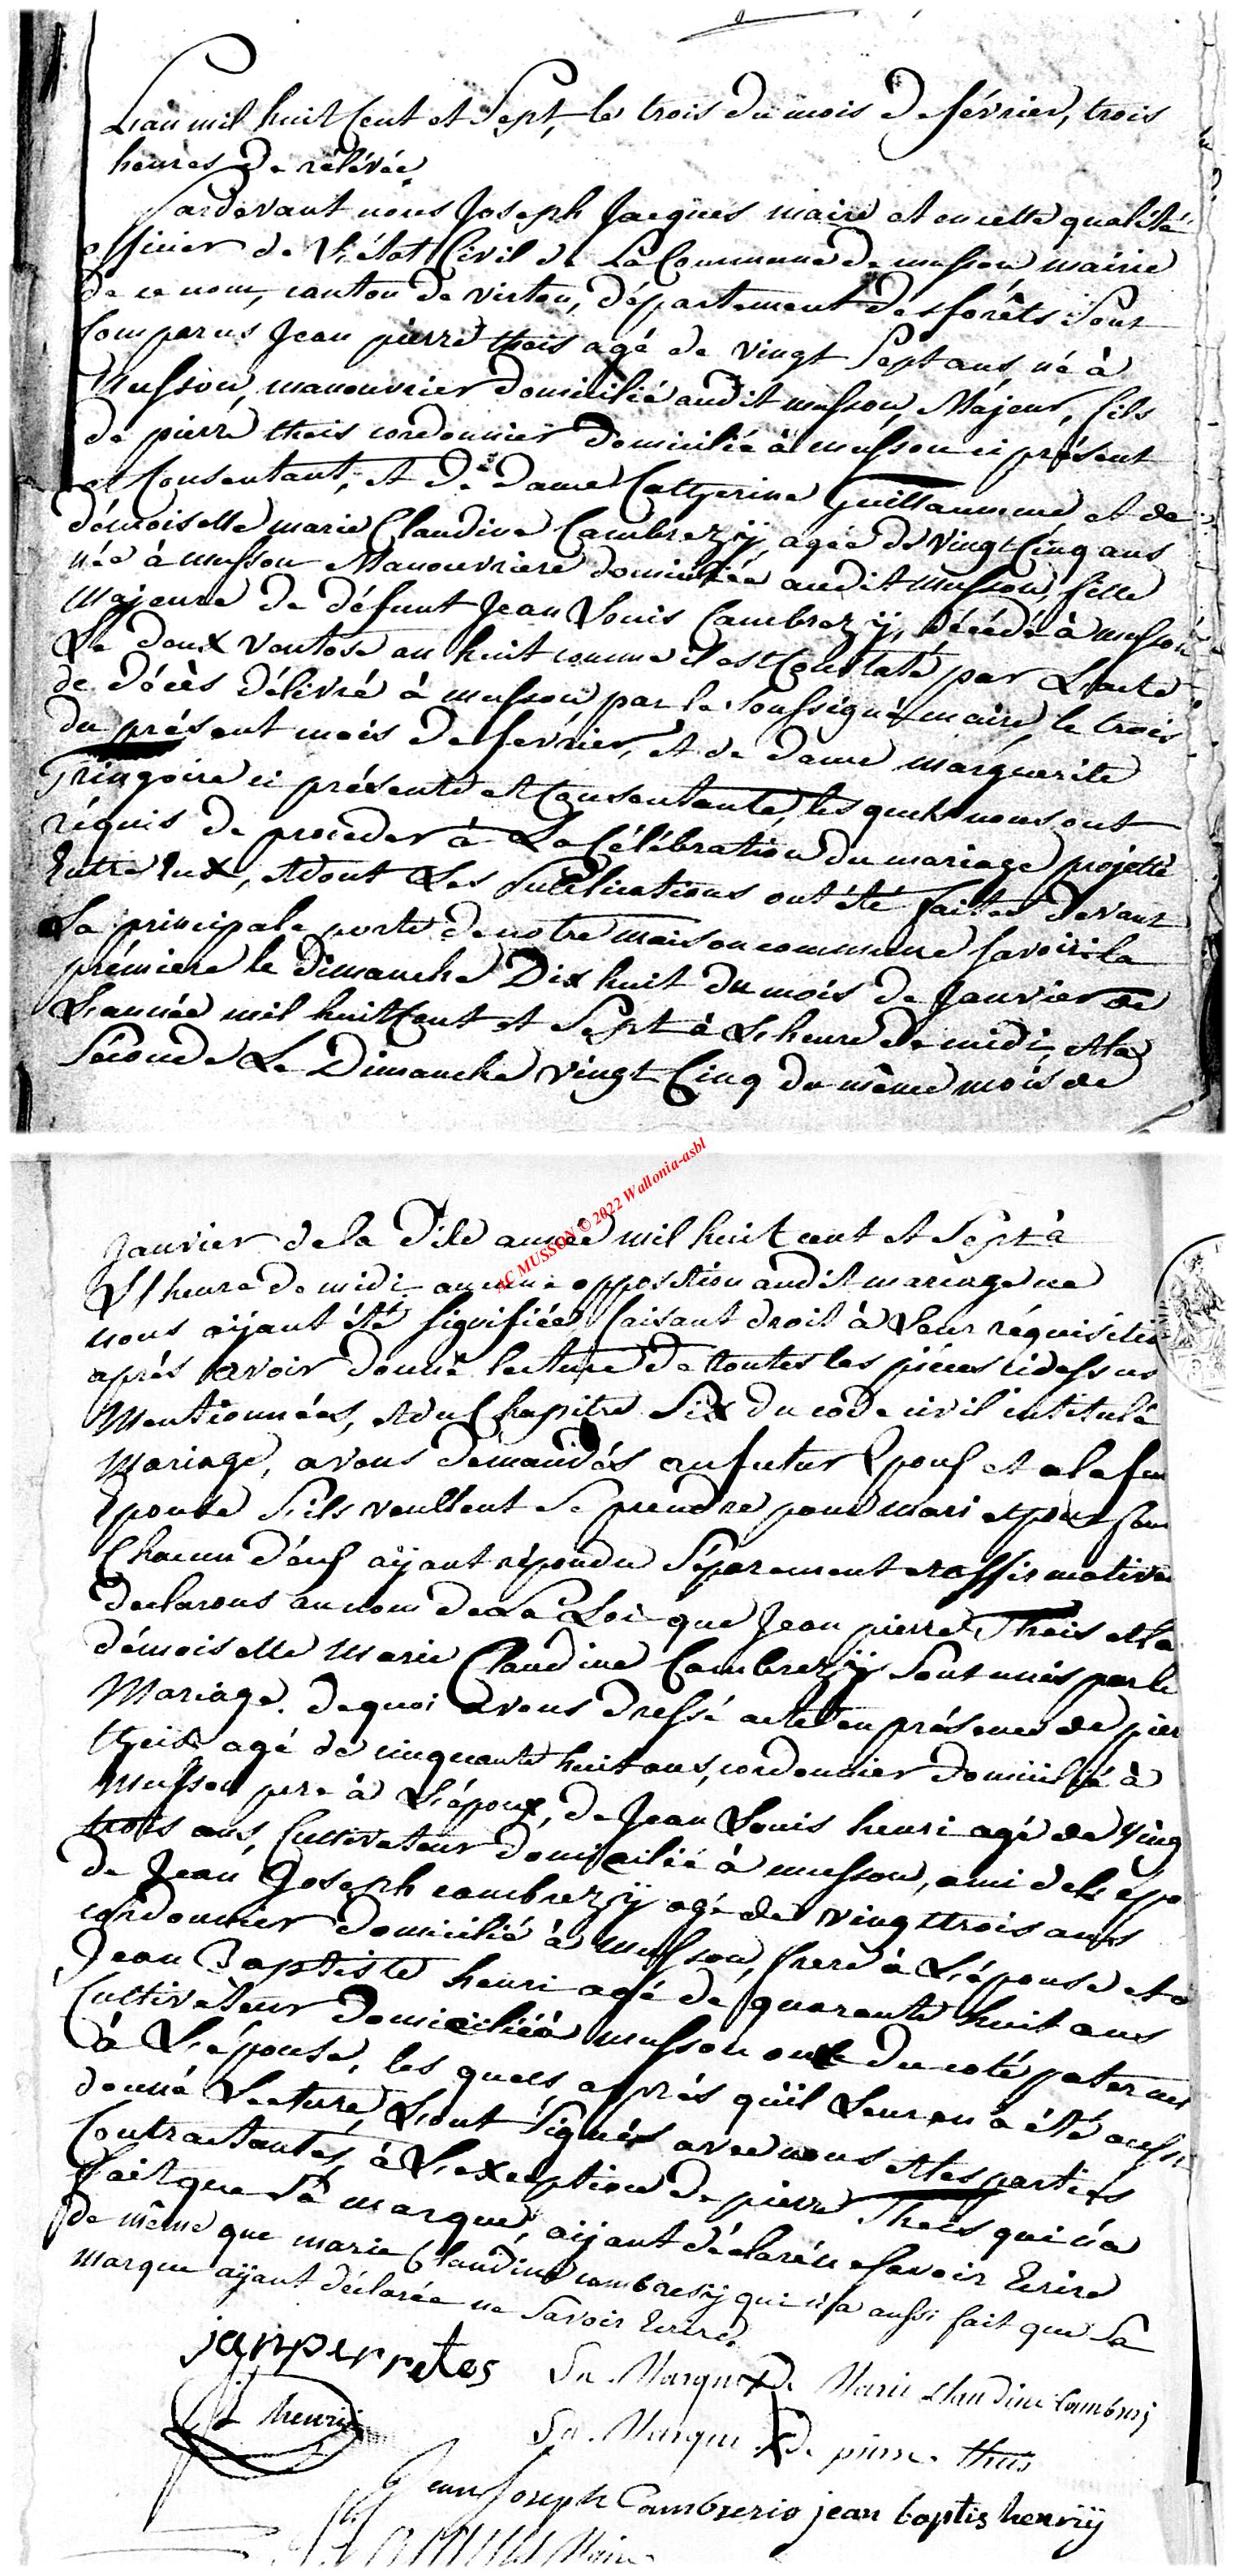 L'an mil huit Cent et Sept, le trois du mois de février, trois
heures de rélévée
Pardevant nous Joseph Jacques maire et en cette qualité
officier de L'état Civil de La Commune de musson mairie
de ce nom, canton de virton, département des forêts Sont
Comparus Jean pierre theis agé de vingt Sept ans, né à
Musson, manouvrier domicilié audit musson, Majeur, fils
de pierre theis cordonnier domicilié à musson ci présent
et Consentant, et de dame Catherine Guillaumme et de
démoiselle marie Claudine Cambrezÿ, agée de vingt Cinq ans
née à musson Manouvriere domiciliée audit musson, fille
Majeure de défunt Jean Louis Cambrezÿ, décédé à musson
Le deux ventose an huit comme il est Constaté par L'acte
de décès délivré à musson par le Soussigné maire, le trois
du présent mois de février, et de dame márguerite
Tringoire ci présente et Consentante, les quels nous ont
réquis de proceder à La Célébration du mariage projetté
Entre Eux, et dont Les Publications ont été faites devant
La principale porte de notre maison commune Savoir: la
prémiere le dimanche Dix huit du mois de Janvier de
L'année mil huit Cent et Sept à L'heure de midi, et la
Séconde Le Dimanche vingt Cinq du même mois de
AC MUSSON © 2022 Wallonia-asbl
Janvier de la dite année mil huit cent et Sept à
L'heure de midi aucune opposition audit mariage ne
nous aÿant été Signifiée, faisant droit à Leur réquisitio
aprés avoir donné lecture de toutes les piéces cidessus
Mentionnées, et du Chapitre Six du code civil intitulé
Mariage, avons demandés au futur Epoux et a la fu
Epouse S'ils veullent Se prendre pour mari et pour fem
Chacun d'eux aÿant répondu Séparement et affirmative
declarons au nom de La Loi que Jean pierre Theis et la
démoiselle Marie Claudine Cambrezÿ Sont unis par le
Mariage. de quoi avons dressé acte en présence de pier
theis agé de cinquante huit ans, cordonnier domicilié à
Musson pere à L'époux, de Jean Louis henri agé de Ving
trois ans, Cultivateur domicilié à musson, ami de l'épo
de Jean Joseph cambrezÿ agé de vingt trois ans
cordonnier domicilié à Musson, frere à L'épouse et
Jean Baptiste henri agé de quarante huit ans
Cultivateur domicilié à musson oncle du coté paternel
à L'épouse, les quels, aprés qu'il Leur en à été aussi
donné Lecture, L'ont Signés avec nous et les parties
Contractantes, à L'exeption de pierre Theis qui n'a
fait que Sa marque, aÿant déclaré ne Savoir Ecrire
de même que marie Claudine cambresÿ qui n'a aussi fait que Sa
marque aÿant déclarée ne Savoir Ecrire.
janpierretes Sa Marque X De Marie Claudine Cambresj
henri Sa Marque X De pierre theis
Jean Joseph Cambresio jean baptis henrÿ
Maire